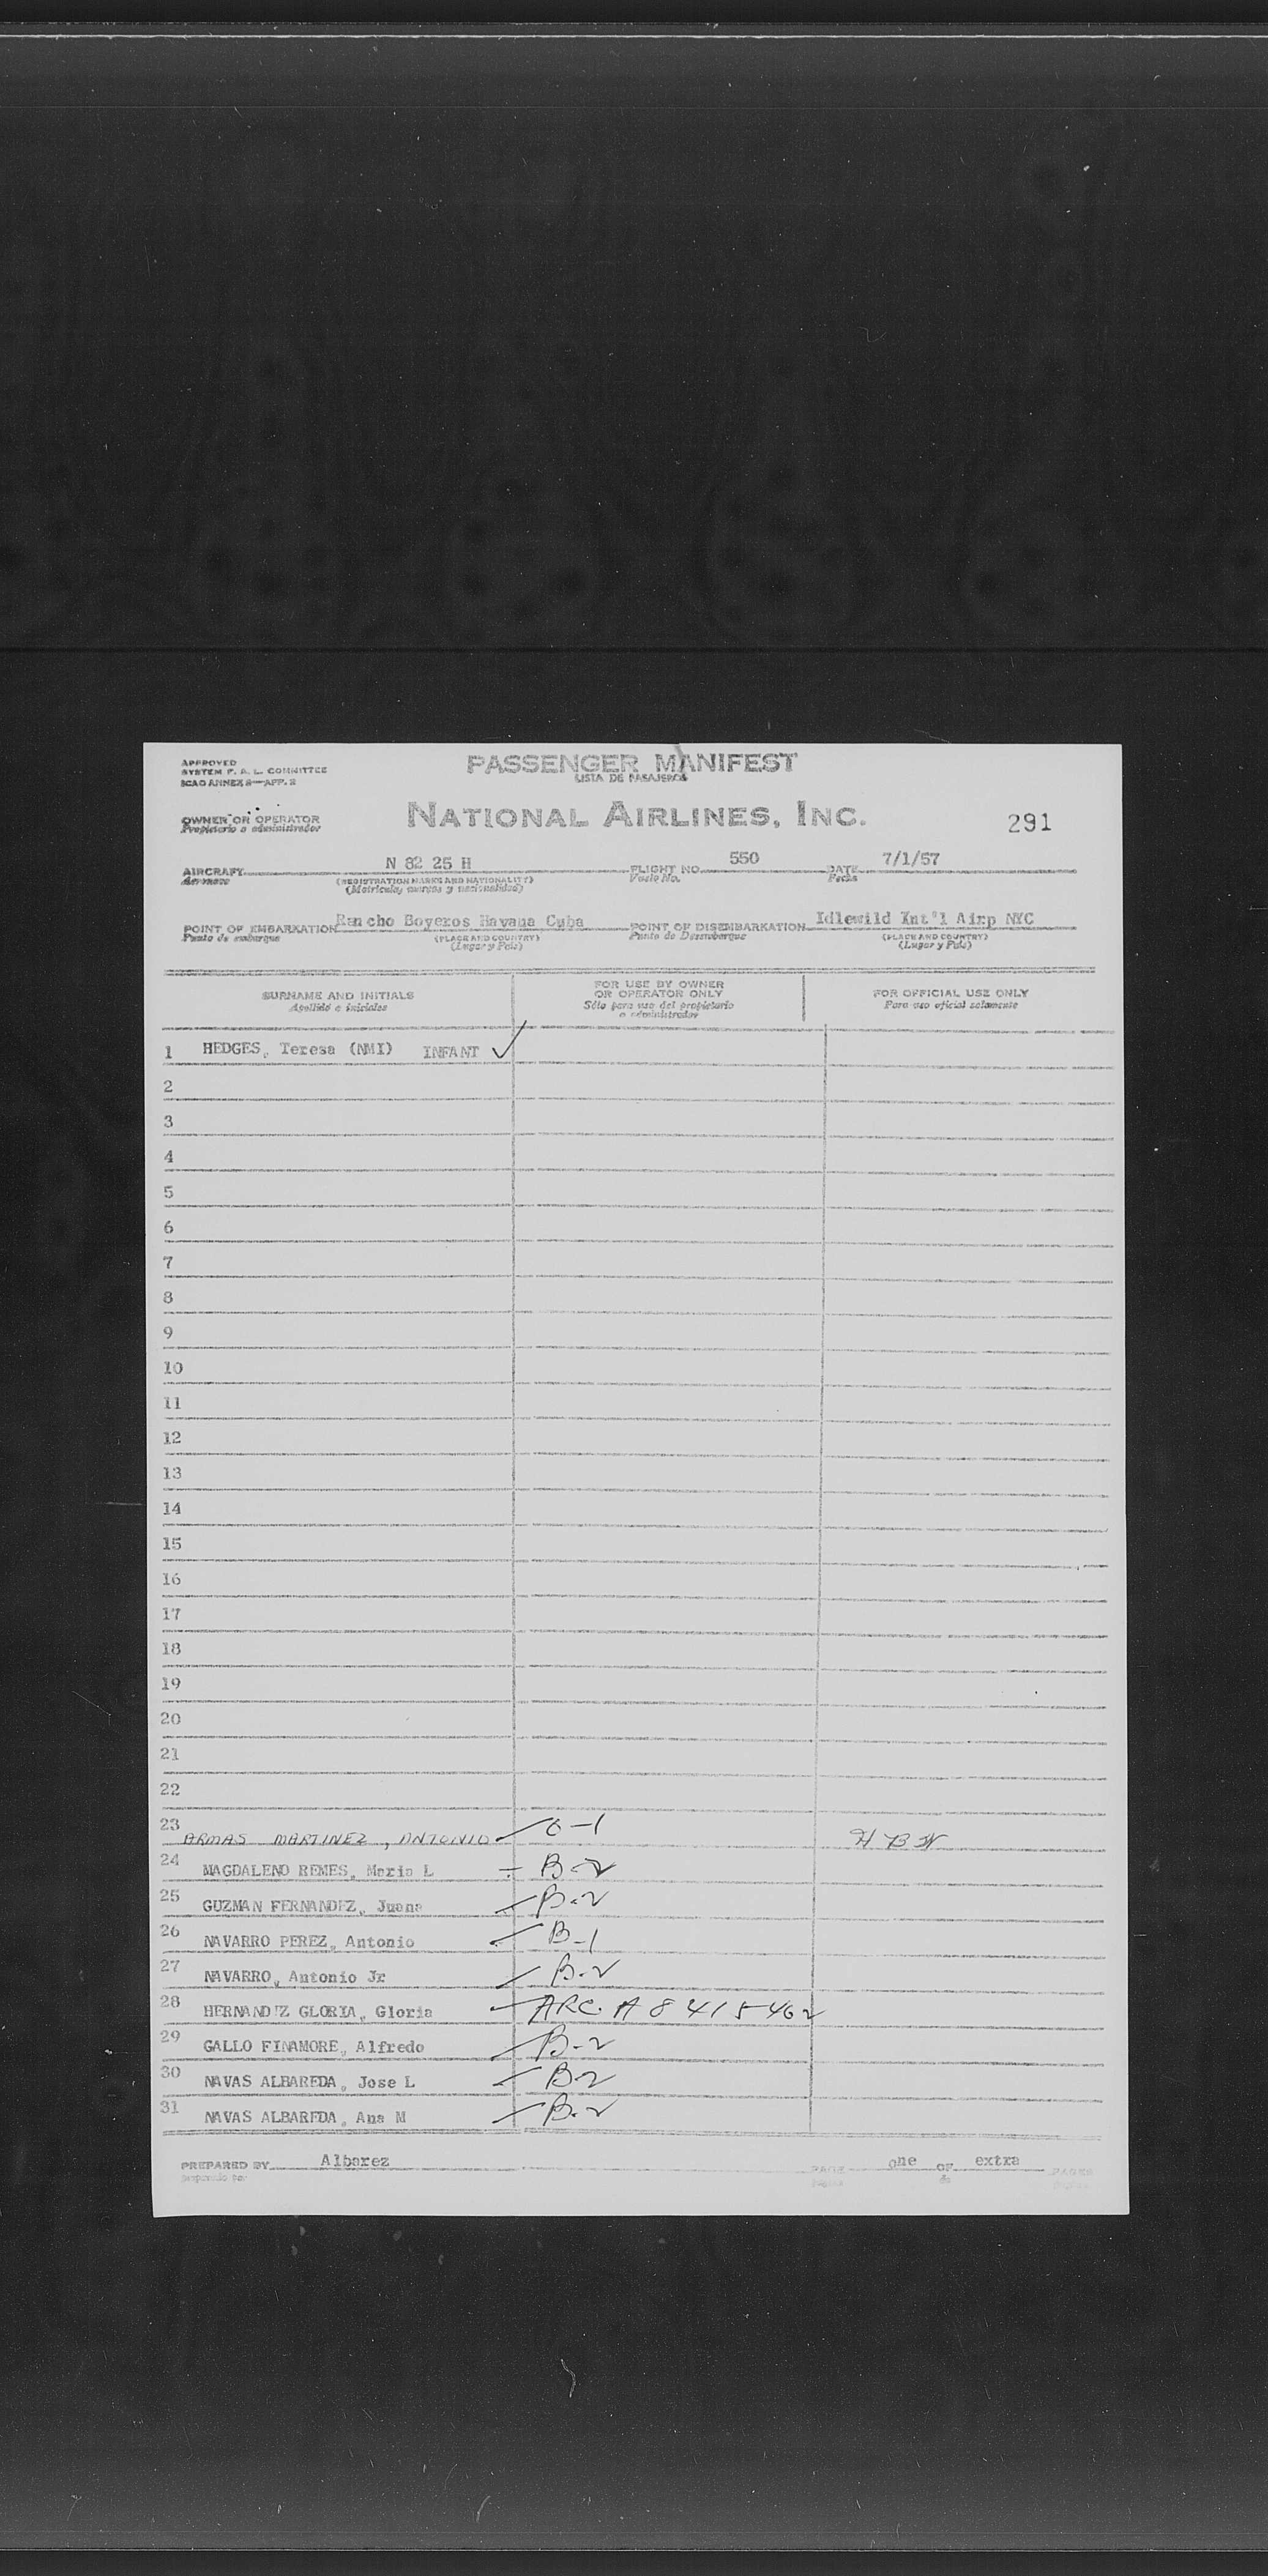 APPROVED
SYSTEM F. A. L. COMMITTEE
ICAO ANNEX 9—APP. 2
PASSENGER MANIFEST
LISTA DE PASAJEROS
OWNER OR OPERATOR
Propietario o administrador
NATIONAL AIRLINES, INC.
291
AIRCRAFT N 82 25 H FLIGHT NO. 550 DATE 7/1/57
Aeronave (REGISTRATION MARKS AND NATIONALITY) Vuelo No. Fecha
(Matriculas, marcas y nacionalidad)
POINT OF EMBARKATION Rancho Boyeros Havana Cuba POINT OF DISEMBARKATION Idlewild Int'l Airp NYC
Punto de embarque (PLACE AND COUNTRY) Punto de Desembarque (PLACE AND COUNTRY)
(Lugar y Pais) (Lugar y Pais)
SURNAME AND INITIALS
Apellido e iniciales
FOR USE BY OWNER
OR OPERATOR ONLY
Sólo para uso del propietario
o administrador
FOR OFFICIAL USE ONLY
Para uso oficial solamente
1 HEDGES, Teresa (NMI) INFANT ✓
2
3
4
5
6
7
8
9
10
11
12
13
14
15
16
17
18
19
20
21
22
23 ARMAS MARTINEZ, ANTONIO C-1
24 MAGDALENO REMES, Maria L B-2
25 GUZMAN FERNANDEZ, Juana B-2
26 NAVARRO PEREZ, Antonio B-1
27 NAVARRO, Antonio Jr B-2
28 HERNANDEZ GLORIA, Gloria ARC. A 8 415 462
29 GALLO FINAMORE, Alfredo B-2
30 NAVAS ALBAREDA, Jose L B-2
31 NAVAS ALBAREDA, Ana M B-2
PREPARED BY Albarez PAGE one OF extra PAGES
preparado por de